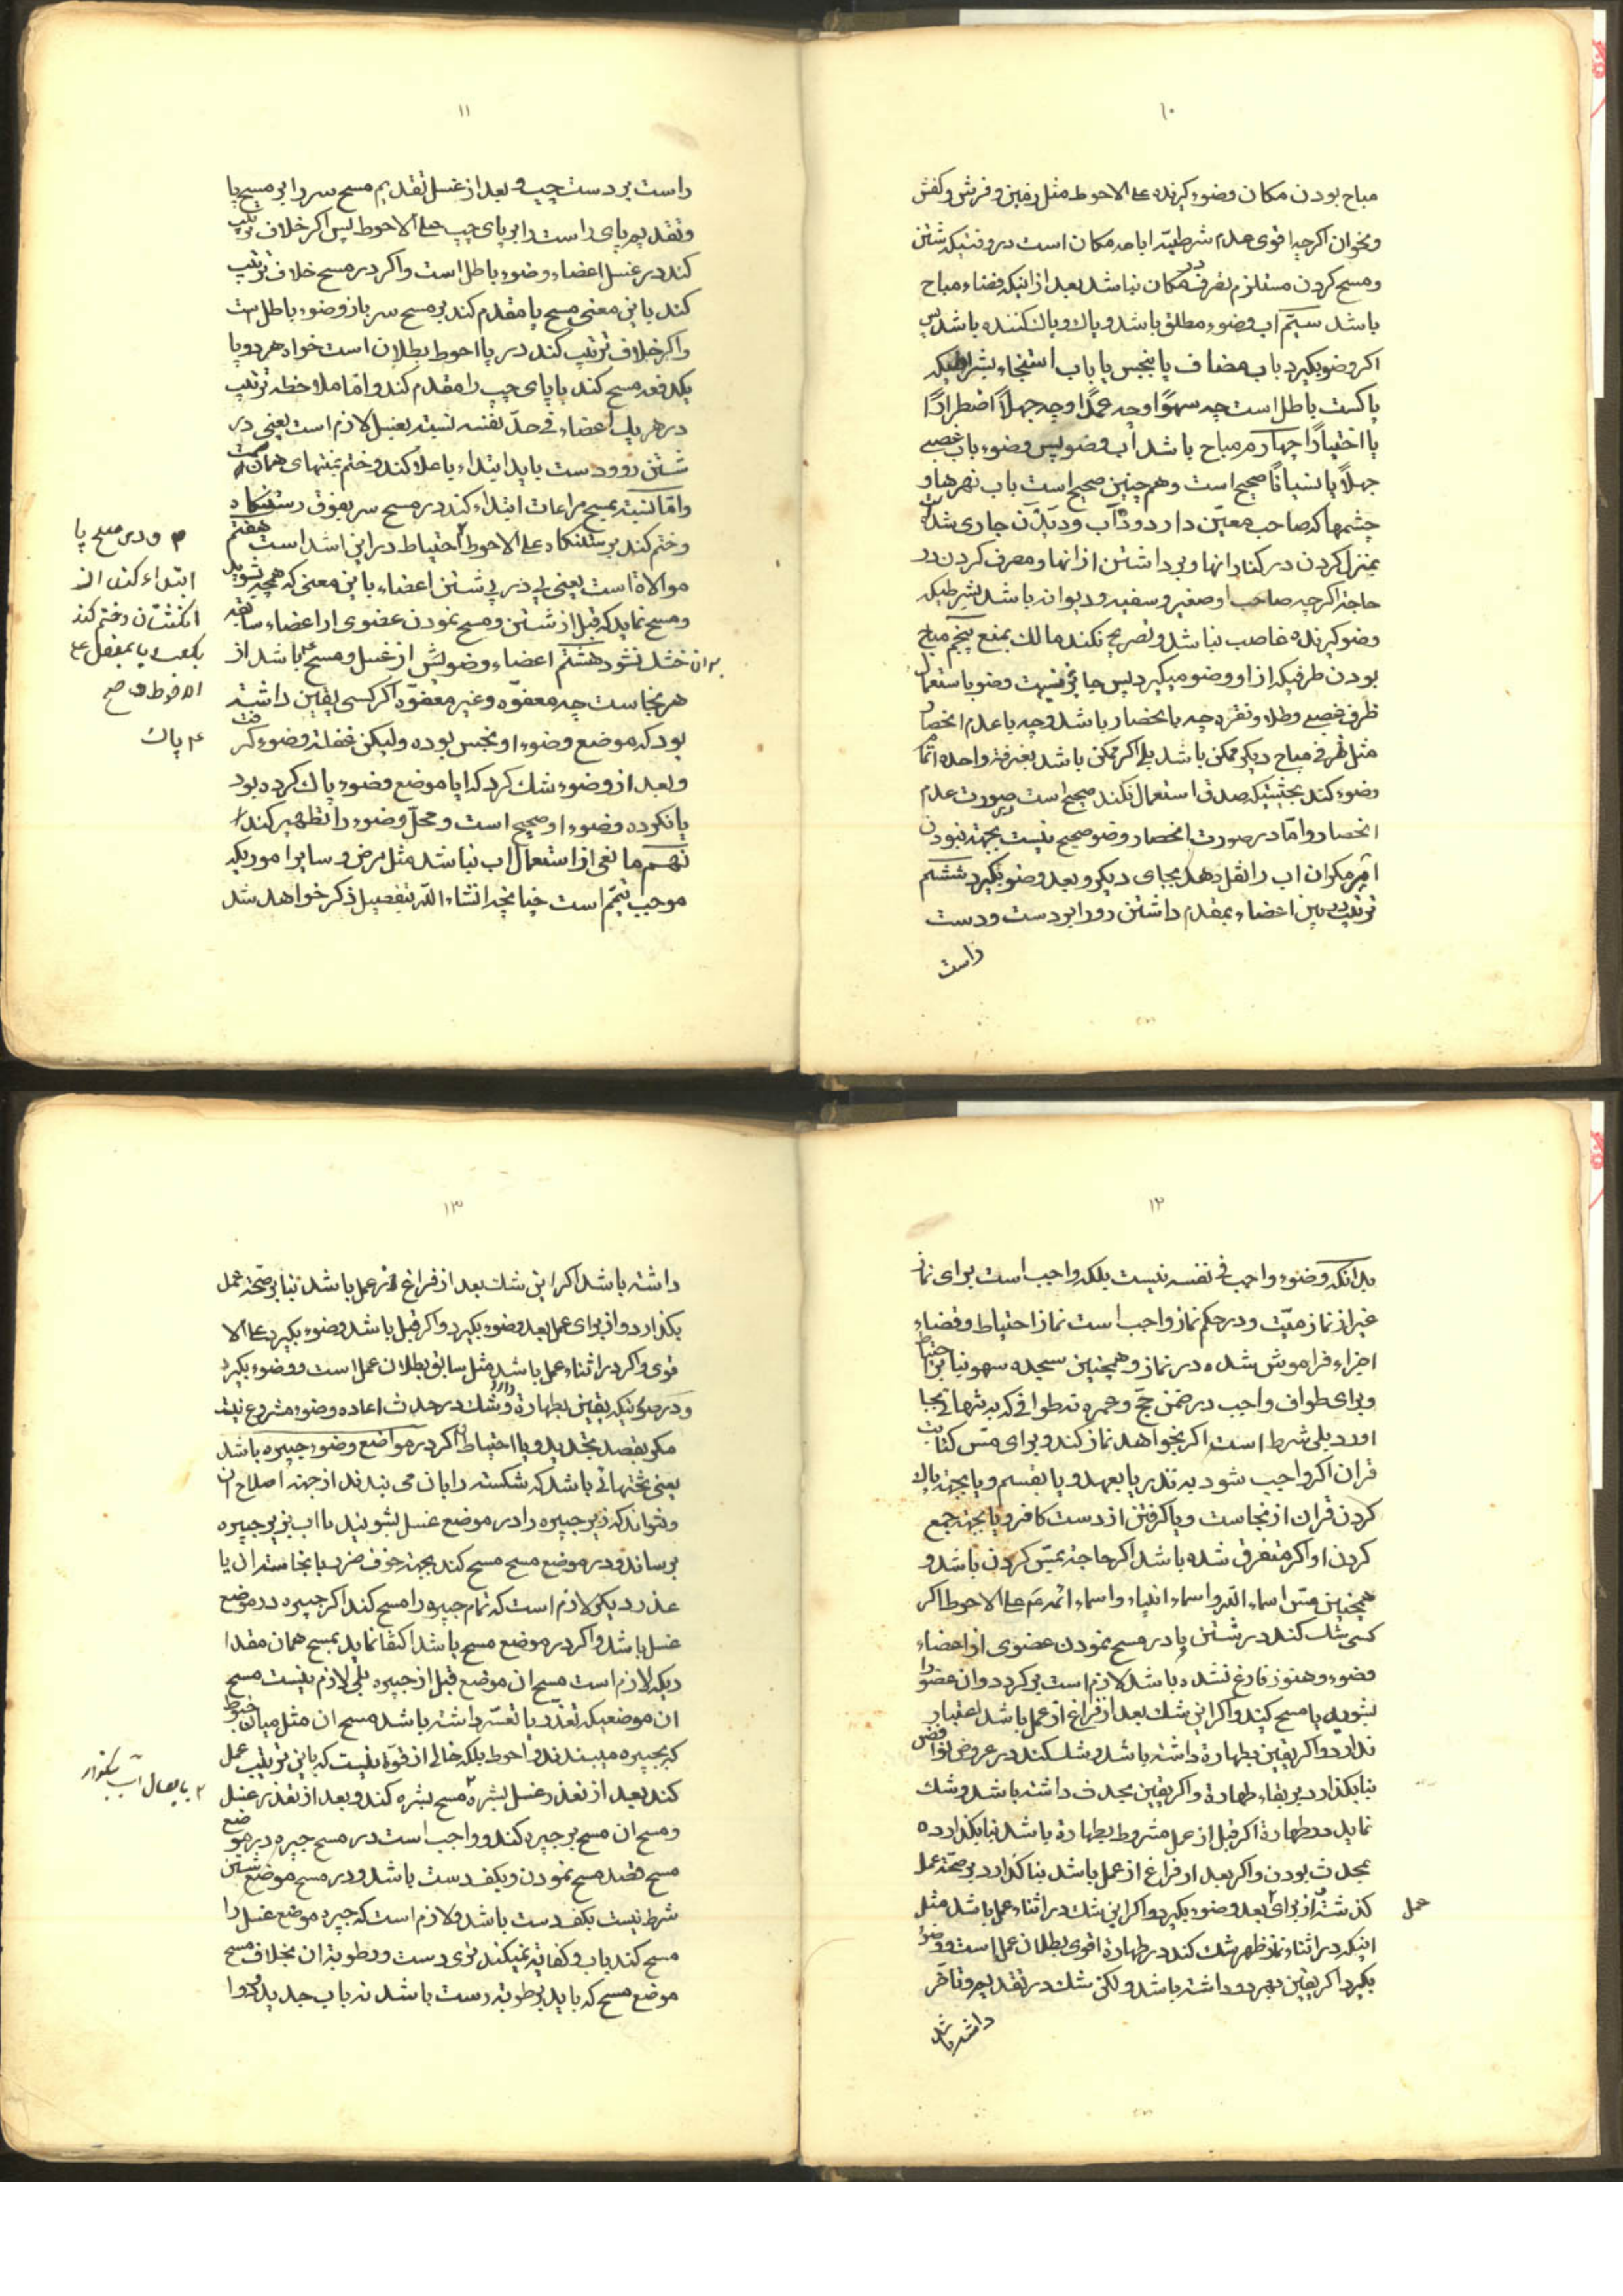 ۱۰
مباح بودن مکان وضوء کیرنده علی الاحوط مثل زمین و فرش و کفش
و نحوان اکرچه اقوی عدم شرطیة اباحه مکان است در وقتیکه شستن
و مسح کردن مستلزم تصرف در مکان نباشد بعد از اینکه فضاء مباح
باشد سیّم اب وضوء مطلق باشد و پاک و پاک کننده باشد پس
اکر وضو بکیرد باب مضاف یا بنجس یا باب استنجاء بشرطیکه
پاکست باطل است چه سهوًا و چه عمدًا و چه جهلًا اضطرارًا
یا اختیارًا چهارم مباح باشد اب وضو پس وضوء باب غصبی
جهلًا یا نسیانًا صحیح است و هم چنین صحیح است باب نهرها و
چشمها که صاحب معیّن دارد
بمنزل کردن در کنار انها و برداشتن از انها و مصرف کردن در
حاجة اکرچه صاحب او صغیر و سفیه و دیوانه باشد بشرطیکه
وضو کیرنده غاصب نباشد و تصریح نکند مالک بمنع پنجم مباح
بودن ظرفیکه از او وضو میکیرد پس جایز نیست وضو باستعمال
ظرف غصبی و طلا و نقره چه با انحصار باشد و چه با عدم انحصار
مثل ظرفی مباح دیکر ممکن باشد بلی اکر ممکن باشد بغرفة واحده اتمام
وضوء کند بحیثیتیکه صدق استعمال نکند صحیح است در صورت عدم
انحصار و امّا در صورت انحصار وضو صحیح نیست بجهة نبودن
امر مکر ان اب را نقل دهد بجای دیکر و بعد وضو بکیرد ششم
ترتیب در بین اعضاء بمقدم داشتن رو را بر دست و دست
راست
۱۱
راست بر دست چپ و بعد از غسل تقدیم مسح سر را بر مسح پا
و تقدیم پای راست را بر پای چپ علی الاحوط پس اکر خلاف ترتیب
کند در غسل اعضاء وضوء باطل است و اکر در مسح خلاف ترتیب
کند باین معنی مسح پا مقدم کند بر مسح سر باز وضوء باطل است
و اکر خلاف ترتیب کند در پا احوط بطلان است خواه هر دو پا
یکدفعه مسح کند یا پای چپ را مقدم کند و امّا ملاحظه ترتیب
در هر یک اعضاء فی حدّ نفسه نسبت بغسل لازم است یعنی در
شستن رو و دست باید ابتداء باعلا کند و ختم بمنتهای همان
و امّا نسبت بمسح مراعات ابتداء کند در مسح سر بفوق رستنکاه
و ختم کند برستنکاه علی الاحوط احتیاط در این اشد است هفتم
موالاة است یعنی پی در پی شستن اعضاء باین معنی که همچه بشوید
و مسح نماید که قبل از شستن و مسح نمودن عضوی از اعضاء سابقه
بر ان خشک نشود هشتم اعضاء وضویش از غسل و مسح باشد از
هر نجاست چه معفوّه و غیر معفوّه اکر کسی یقین داشته
بود که موضع وضوء او نجس بوده ولیکن غفلة وضوء کرفت
و بعد از وضوء شک کرد که ایا موضع وضوء پاک کرده بود
یا نکرده وضوء او صحیح است و محلّ وضوء را تطهیر کند
نهم مانعی از استعمال اب نباشد مثل مرض و سایر اموریکه
موجب تیمّم است چنانچه انشاء الله بتفصیل ذکر خواهد شد
م و در مسح پا
ابتداء کند از
انکشتان و ختم کند
بکعب یا بمفصل علی
الاحوط صح
پاک
۱۲
بدانکه وضوء واجب فی نفسه نیست بلکه واجب است برای نماز
غیر از نماز میّت و در حکم نماز واجب است نماز احتیاط و قضاء
اجزاء فراموش شده در نماز و همچنین سجده سهو بنابر احتیاط
و برای طواف واجب در ضمن حجّ و عمره نه طوافی که به تنهائی بجا
اورد بلی شرط است اکر بخواهد نماز کند و برای مسّ کتابت
قران اکر واجب شود به نذر یا بعهد و یا بقسم و یا بجهة پاک
کردن قران از نجاست و یا کرفتن از دست کافر و یا بجهة جمع
کردن او اکر متفرق شده باشد اکر حاجة بمسّ کردن باشد و
همچنین مسّ اسماء الله و اسماء انبیاء و اسماء ائمه ع علی الاحوط اکر
کسی شک کند در شستن یا در مسح نمودن عضوی از اعضاء
وضوء و هنوز فارغ نشده باشد لازم است برکردد و ان عضو را
بشوید یا مسح کند و اکر این شک بعد از فراغ از عمل باشد اعتبار
ندارد و اکر یقین بطهارة داشته باشد و شک کند در عروض نواقض
بنا بکذارد بر بقاء طهارة و اکر یقین بحدث داشته باشد و شک
نماید در طهارة اکر قبل از عمل مشروط بطهارة باشد بنا بکذارد ه
بحدث بودن و اکر بعد از فراغ از عمل باشد بنا کذارد بر صحّة عمل
کذشته از برای بعد وضوء بکیرد و اکر این شک در اثناء عمل باشد مثل
عمل
اینکه در اثناء نماز ظهر شک کند در طهارة اقوی بطلان عمل است و وضوء
بکیرد اکر یقین بهر دو داشته باشد و لکن شک در تقدیم و تاخّر
داشته باشد
۱۳
داشته باشد اکر این شک بعد از فراغ از عمل باشد بنا بر صحّة عمل
بکذارد و از برای عمل بعد وضوء بکیرد و اکر قبل باشد وضوء بکیرد علی الا
قوی و اکر در اثناء عمل باشد مثل سابق بطلان عمل است و وضوء بکیرد
و در صورتیکه یقین بطهارة دارد و شک در حدث اعاده وضوء مشروع نیست
مکر بقصد تجدید و یا احتیاط اکر در مواضع وضوء جبیره باشد
یعنی تختهائی باشد که شکسته را بان می بندند از جهة اصلاح ان
و نتواند که زیر جبیره را در موضع غسل بشوئید یا اب بزیر جبیره
برساند و در موضع مسح مسح کند بجهة خوف ضرر یا نجاست ان یا
عذر دیکر لازم است که تمام جبیره را مسح کند اکر جبیره در موضع
غسل باشد و اکر در موضع مسح باشد اکتفا نماید بمسح همان مقدا
ریکه لازم است مسح ان موضع قبل از جبیره بلی لازم نیست مسح
ان موضعیکه تعذّر یا تعسّر داشته باشد مسح ان مثل میان خیوط
که بجبیره میبندند و احوط بلکه خالی از قوّة نیست که باین ترتیب عمل
کند بعد از تعذر غسل بشره مسح بشره کند و بعد از تعذر غسل
و مسح ان مسح بر جبیره کند و واجب است در مسح جبیره در موضع
مسح قصد مسح نمودن و بکف دست باشد و در مسح موضع شستن
شرط نیست بکف دست باشد و لازم است که جبیره موضع غسل را
مسح کند باب و کفایة نمیکند تری دست و رطوبة ان بخلاف مسح
موضع مسح که باید برطوبة دست باشد نه باب جدید